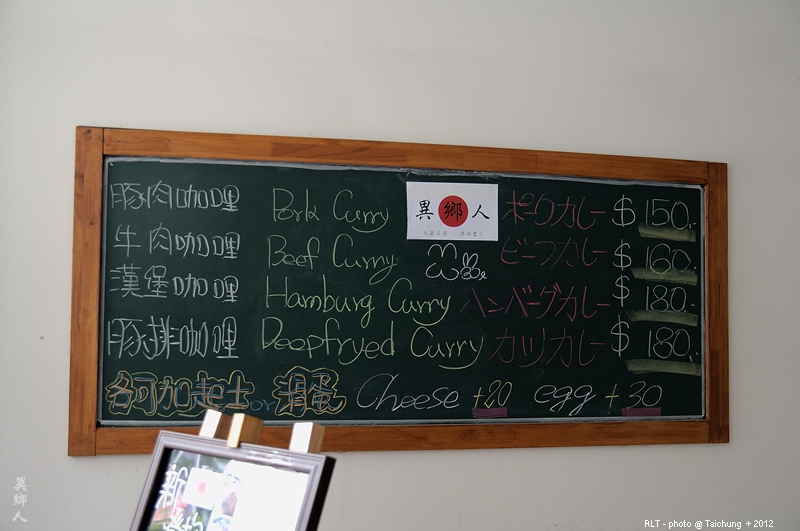 豚肉咖哩 Pork Curry ポークカレー $150.-
牛肉咖哩 Beef Curry ビーフカレー $160.-
漢堡咖哩 Hamburg Curry ハンバーグカレー $180.-
豚排咖哩 Deepfryed Curry カツカレー $180.-
各可加起士 or 滑蛋 Cheese +20 egg +30
異鄉人
異鄉人
RLT - photo @ Taichung + 2012